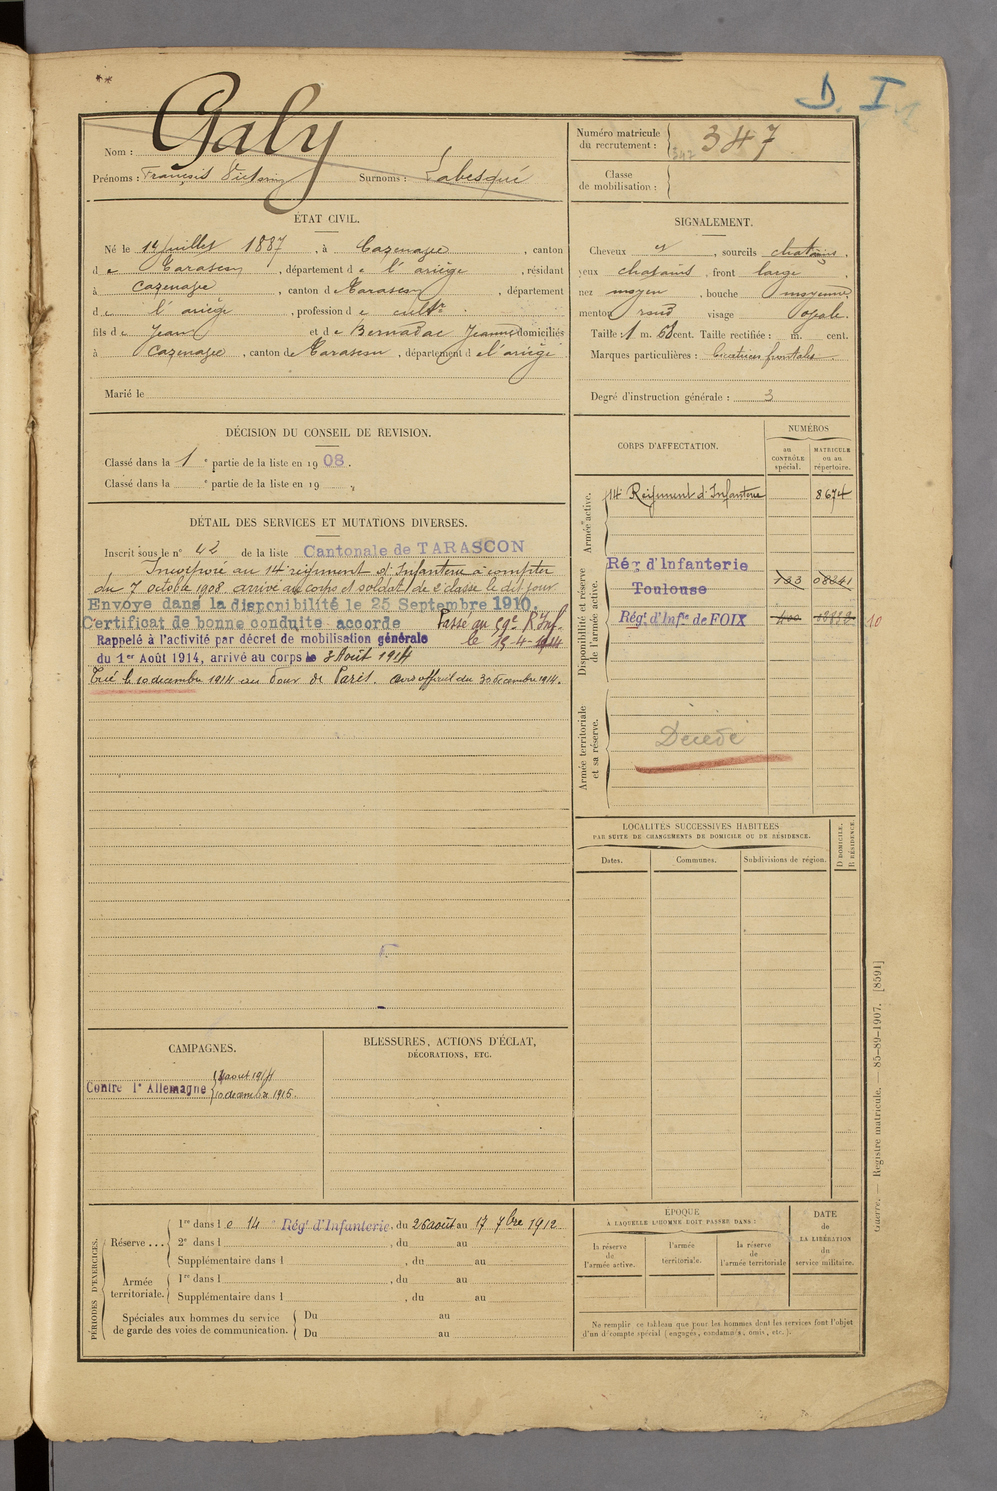 D. I
Galy
Nom :
Prénoms : François Victorin Surnoms : Labesqué
Numéro matricule
du recrutement : 347
Classe
de mobilisation :
ÉTAT CIVIL.
Né le 14 Juillet 1887, à Cazenave, canton
de Tarascon, département de l'ariège, résidant
à Cazenave, canton de Tarascon, département
de l'ariège, profession de cultr
fils de Jean et de Bernadac Jeanne domiciliés
à Cazenave, canton de Tarascon, département de l'ariège
Marié le
SIGNALEMENT.
Cheveux et, sourcils chatains.
yeux chatains, front large
nez moyen, bouche moyenne.
menton rond visage ovale.
Taille : 1 m. 58 cent. Taille rectifiée : m. cent.
Marques particulières : Cicatrices frontales.
Degré d'instruction générale : 3
DÉCISION DU CONSEIL DE REVISION.
Classé dans la 1e partie de la liste en 1908.
Classé dans la e partie de la liste en 19
DÉTAIL DES SERVICES ET MUTATIONS DIVERSES.
Inscrit sous le n° 42 de la liste Cantonale de TARASCON
Incorporé au 14e régiment d'Infanterie à compter
du 7 octobre 1908 arrivé au corps et soldat de 2e classe le dit jour
Envoyé dans la disponibilité le 25 Septembre 1910.
Certificat de bonne conduite accordé Passé au 59e R. Inf.
Rappelé à l'activité par décret de mobilisation générale le 15-4-1914
du 1er Août 1914, arrivé au corps le 3 Août 1914
Tué le 10 décembre 1914 au Four de Paris. avis officiel du 30 décembre 1914.
CORPS D'AFFECTATION.
NUMÉROS
au
CONTRÔLE
spécial.
MATRICULE
ou au
répertoire.
Armée active.
14e Régiment d'Infanterie 8674
Disponibilité et réserve
de l'armée active.
Rég. d'Infanterie
Toulouse 133 08241
Régt d'Infie de FOIX
10
Armée territoriale
et sa réserve.
Décédé
LOCALITÉS SUCCESSIVES HABITÉES
PAR SUITE DE CHANGEMENTS DE DOMICILE OU DE RÉSIDENCE.
Dates. Communes. Subdivisions de région.
D DOMICILE.
R RÉSIDENCE.
CAMPAGNES.
Contre l'Allemagne
3 août 1914
10 décembre 1915.
BLESSURES, ACTIONS D'ÉCLAT,
DÉCORATIONS, ETC.
PÉRIODES D'EXERCICES.
Réserve ...
1re dans le 14e Régt d'Infanterie, du 26 août au 17 7bre 1912
2e dans l , du au
Supplémentaire dans l , du au
Armée
territoriale.
1re dans l , du au
Supplémentaire dans l , du au
Spéciales aux hommes du service
de garde des voies de communication.
Du au
Du au
ÉPOQUE
À LAQUELLE L'HOMME DOIT PASSER DANS :
la réserve
de
l'armée active.
l'armée
territoriale.
la réserve
de
l'armée territoriale
DATE
de
LA LIBÉRATION
du
service militaire.
Ne remplir ce tableau que pour les hommes dont les services font l'objet
d'un décompte spécial (engagés, condamnés, omis, etc.).
Guerre. — Registre matricule. — 85-89-1907. [8591]